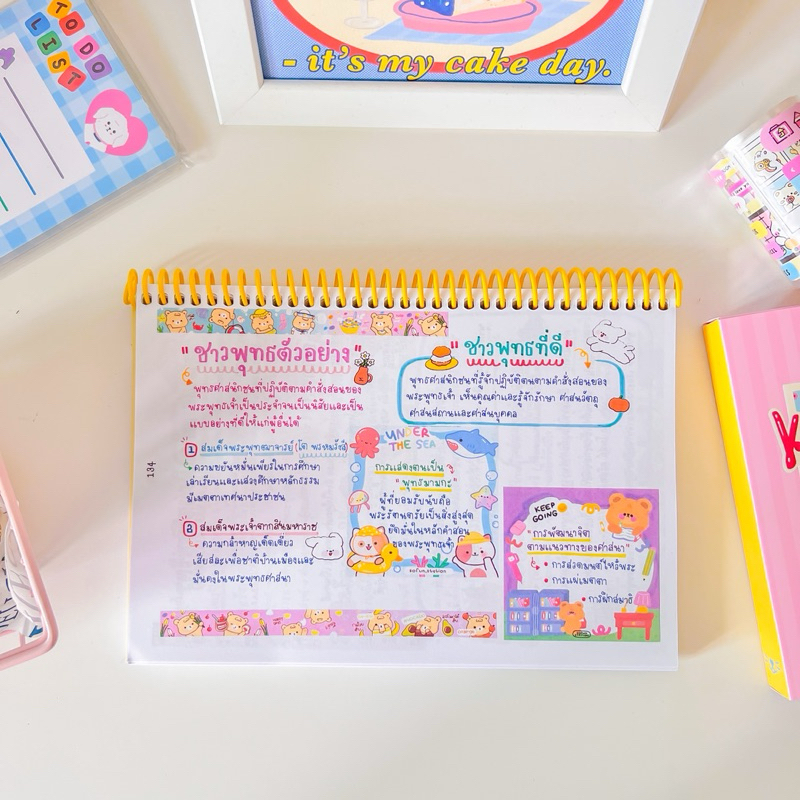 TO DO
LIST
- it's my cake day.
134
"ชาวพุทธตัวอย่าง"
พุทธศาสนิกชนที่ปฏิบัติตามคำสั่งสอนของ
พระพุทธเจ้าเป็นประจำจนเป็นนิสัยและเป็น
แบบอย่างที่ดีให้แก่ผู้อื่นได้
1 สมเด็จพระพุทธาจารย์ (โต พรหมรังสี)
ความขยันหมั่นเพียรในการศึกษา
เล่าเรียนและแสวงศึกษาหลักธรรม
มีเมตตาเทศนาประชาชน
2 สมเด็จพระเจ้าตากสินมหาราช
ความกล้าหาญเด็ดเดี่ยว
เสียสละเพื่อชาติบ้านเมืองและ
มั่นคงในพระพุทธศาสนา
"ชาวพุทธที่ดี"
พุทธศาสนิกชนที่รู้จักปฏิบัติตนตามคำสั่งสอนของ
พระพุทธเจ้า เห็นคุณค่าและรู้จักรักษา ศาสนวัตถุ
ศาสนสถานและศาสนบุคคล
UNDER
THE SEA
การแสดงตนเป็น
"พุทธมามกะ"
ผู้ที่ยอมรับนับถือ
พระรัตนตรัยเป็นสิ่งสูงสุด
ยึดมั่นในหลักคำสอน
ของพระพุทธเจ้า
KEEP
GOING
"การพัฒนาจิต
ตามแนวทางของศาสนา"
• การสวดมนต์ไหว้พระ
• การแผ่เมตตา
• การฝึกสมาธิ